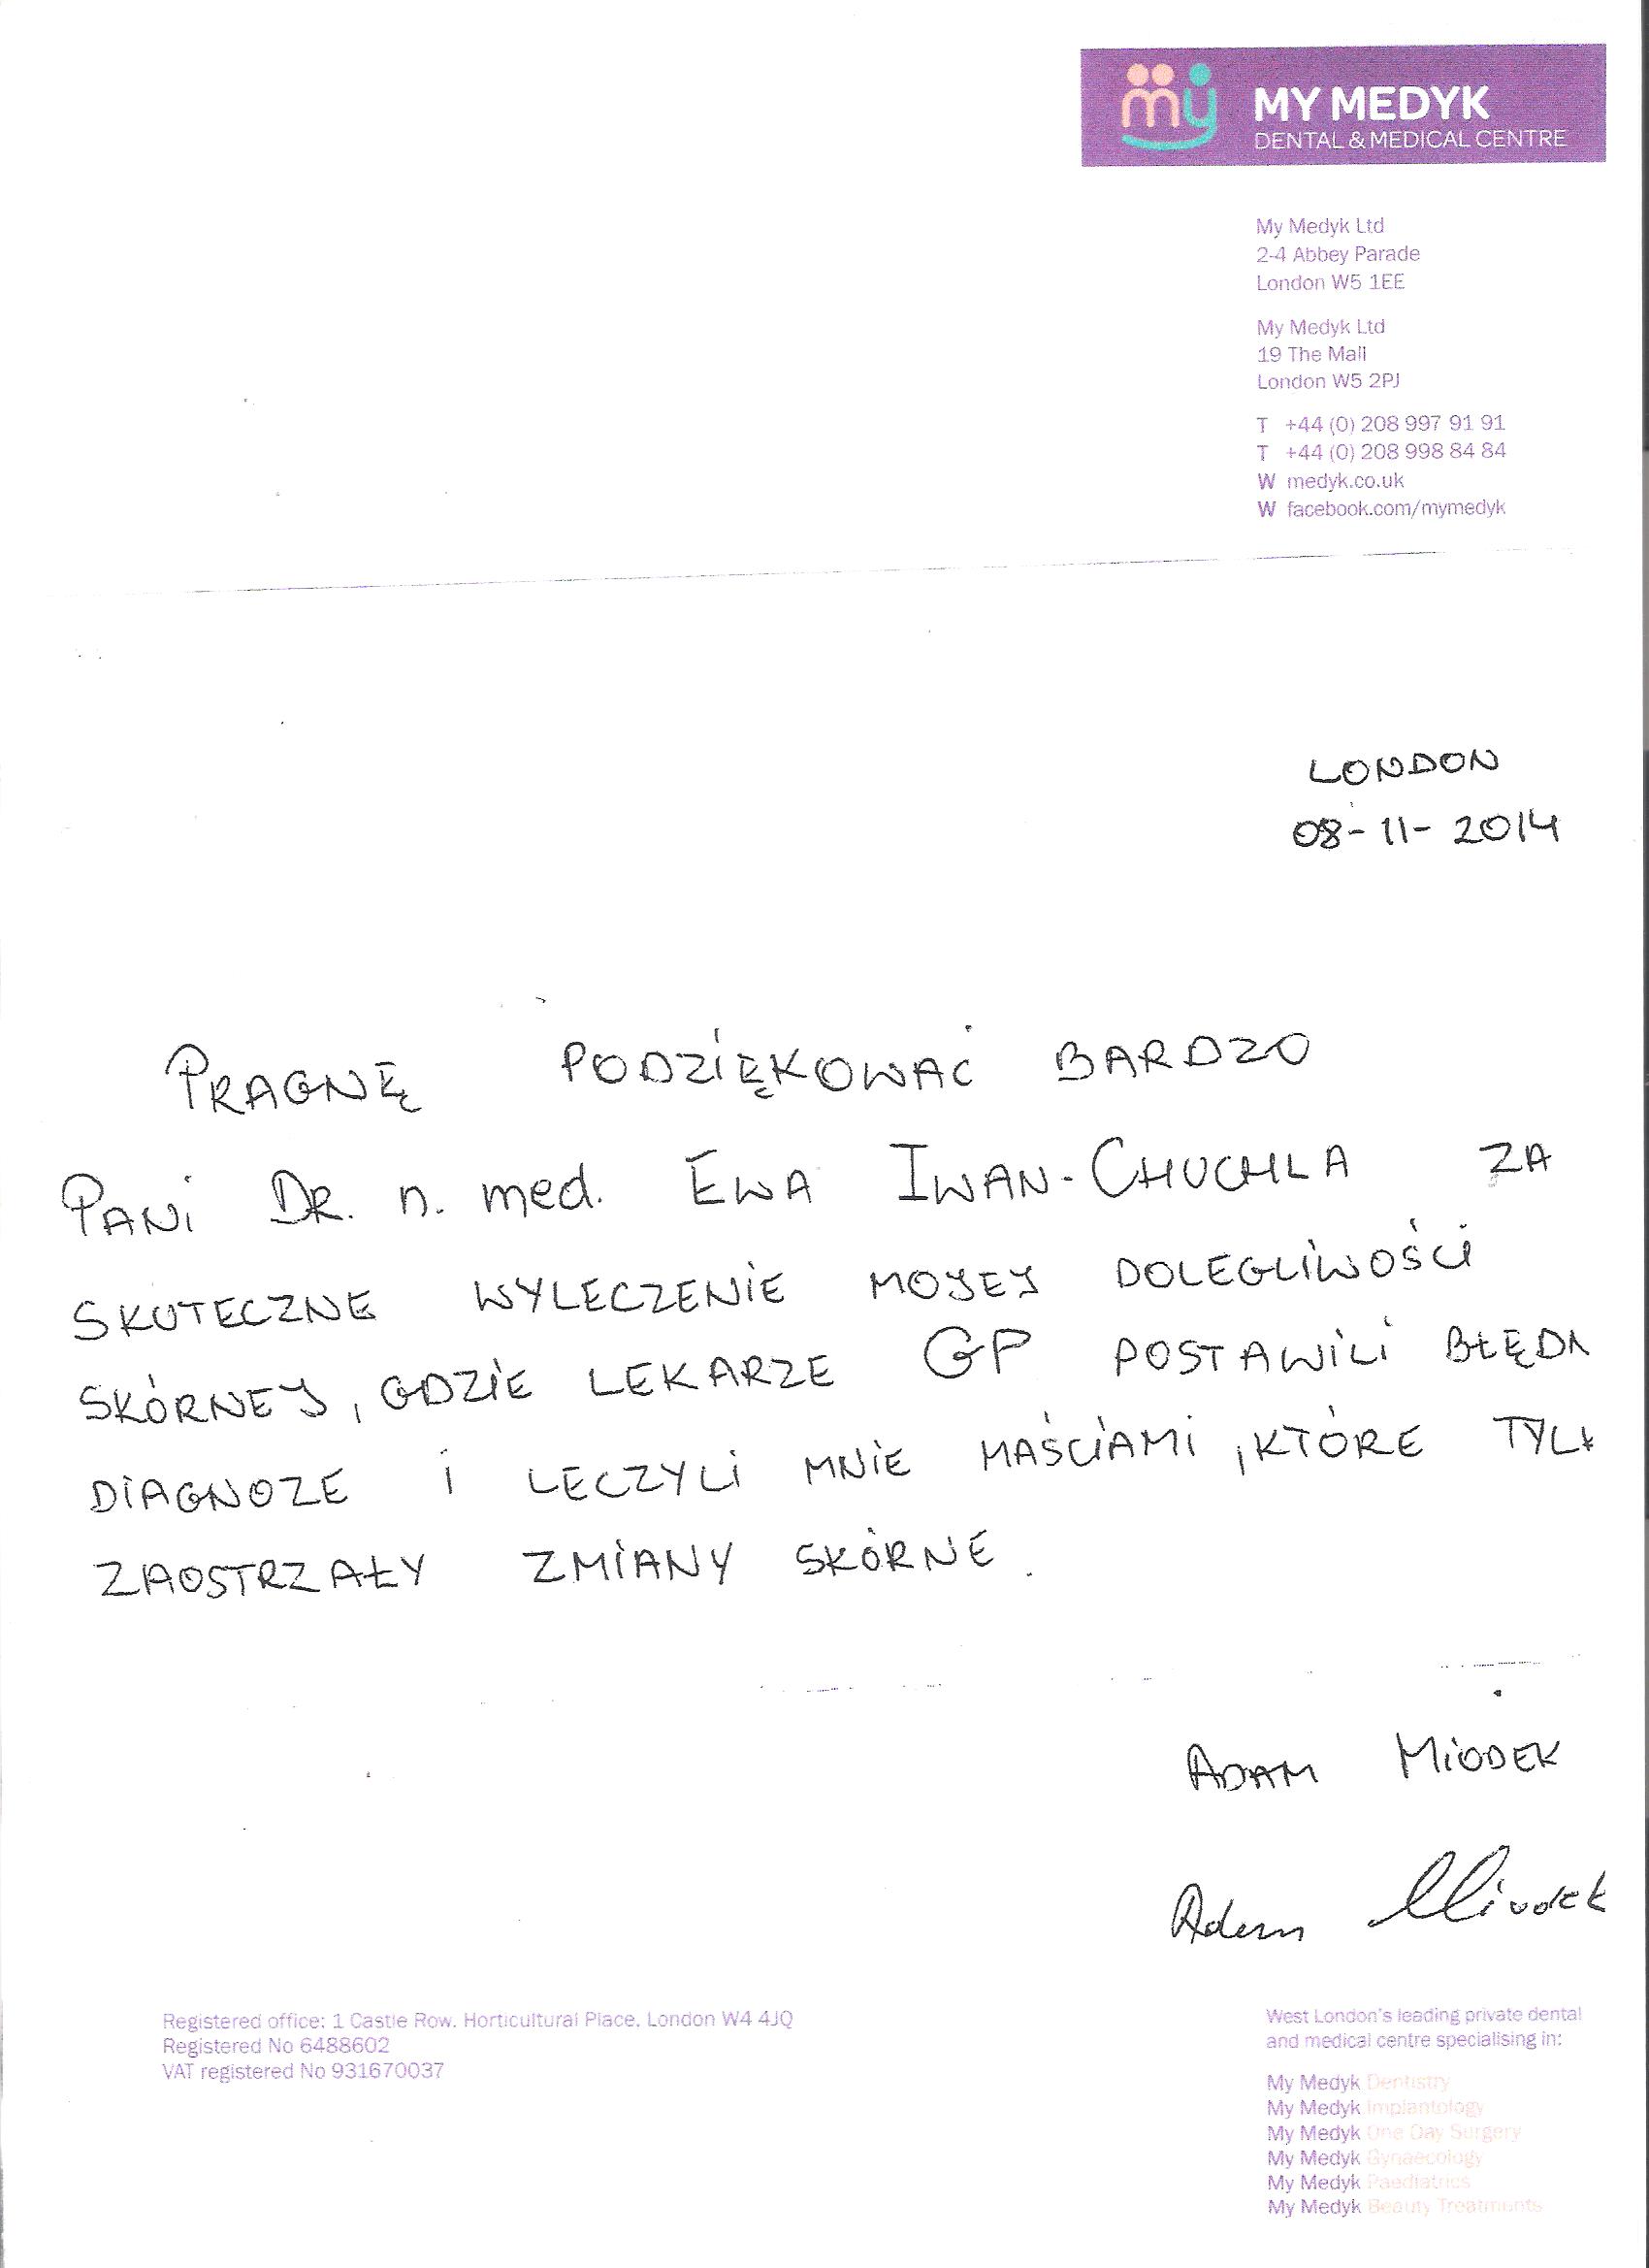 my MY MEDYK
DENTAL & MEDICAL CENTRE
My Medyk Ltd
2-4 Abbey Parade
London W5 1EE
My Medyk Ltd
19 The Mall
London W5 2PJ
T +44 (0) 208 997 91 91
T +44 (0) 208 998 84 84
W medyk.co.uk
W facebook.com/mymedyk
LONDON
08-11-2014
PRAGNĘ PODZIĘKOWAĆ BARDZO
PANI DR. n. med. EWA IWAN-CHUCHLA ZA
SKUTECZNE WYLECZENIE MOJEJ DOLEGLIWOŚCI
SKÓRNEJ, GDZIE LEKARZE GP POSTAWILI BŁĘDN
DIAGNOZE I LECZYLI MNIE MAŚCIAMI, KTÓRE TYLK
ZAOSTRZAŁY ZMIANY SKÓRNE.
ADAM MIODEK
Adam Miodek
Registered office: 1 Castle Row, Horticultural Place, London W4 4JQ
Registered No 6488602
VAT registered No 931670037
West London's leading private dental
and medical centre specialising in:
My Medyk Dentistry
My Medyk Implantology
My Medyk One Day Surgery
My Medyk Gynaecology
My Medyk Paediatrics
My Medyk Beauty Treatments